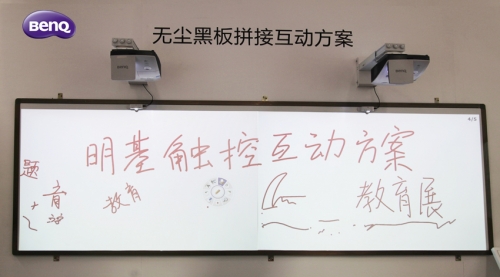 BenQ
无尘黑板拼接互动方案
4/8
明基触控互动方案
题
音
教育
教育展